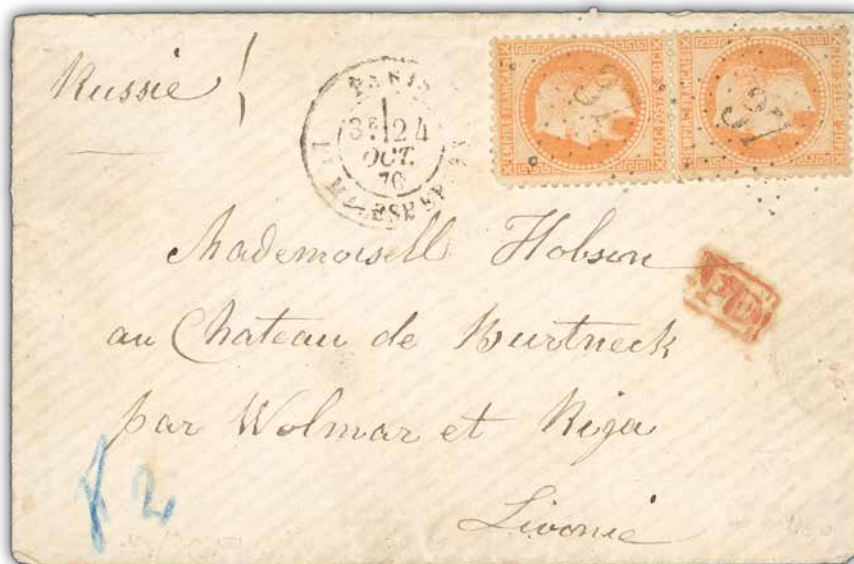 Russie
PARIS
3E 24
OCT.
70
Bd MALESHERBES
37
37
Mademoisell Hobson
au Chateau de Burtneck
PD
par Wolmar et Riga
Livonie
f 2